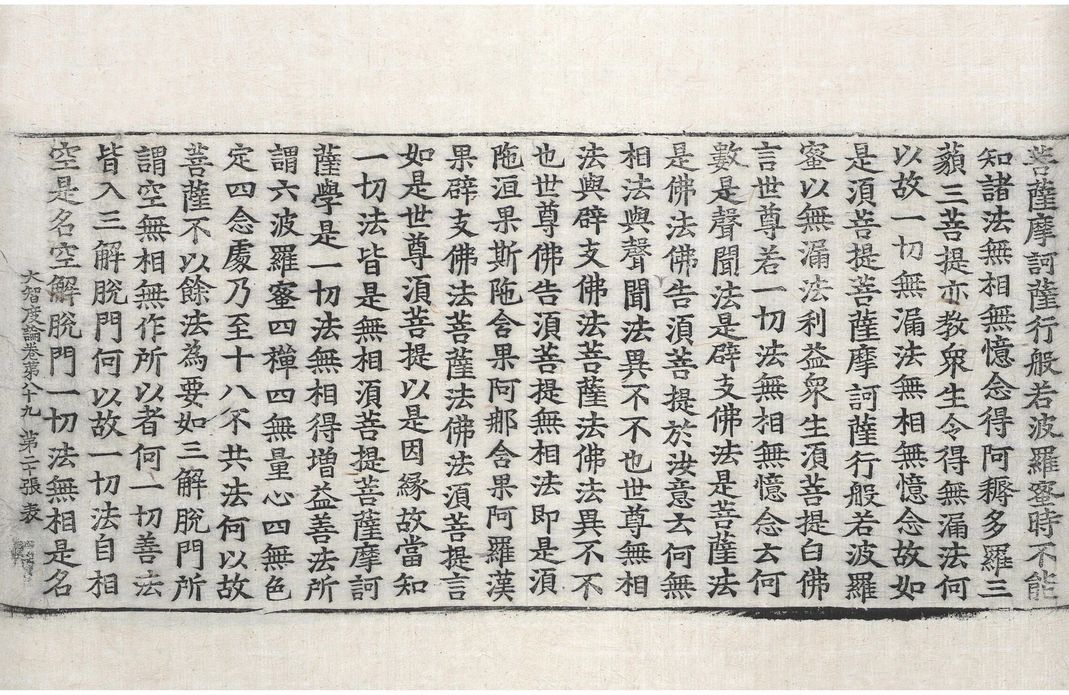 菩薩摩訶薩行般若波羅蜜時不能
知諸法無相無憶念得阿耨多羅三
藐三菩提亦教衆生令得無漏法何
以故一切無漏法無相無憶念故如
是湏菩提菩薩摩訶薩行般若波羅
蜜以無漏法利益衆生湏菩提白佛
言世尊若一切法無相無憶念云何
數是聲聞法是辟支佛法是菩薩法
是佛法佛告湏菩提於汝意云何無
相法與聲聞法異不不也世尊無相
法與辟支佛法菩薩法佛法異不不
也世尊佛告湏菩提無相法即是湏
陁洹果斯陁含果阿那含果阿羅漢
果辟支佛法菩薩法佛法湏菩提言
如是世尊湏菩提以是因緣故當知
一切法皆是無相湏菩提菩薩摩訶
薩學是一切法無相得增益善法所
謂六波羅蜜四禪四無量心四無色
定四念處乃至十八不共法何以故
菩薩不以餘法為要如三解脫門所
謂空無相無作所以者何一切善法
皆入三解脫門何以故一切法自相
空是名空解脫門一切法無相是名
大智度論卷第八十九 第二十張 表